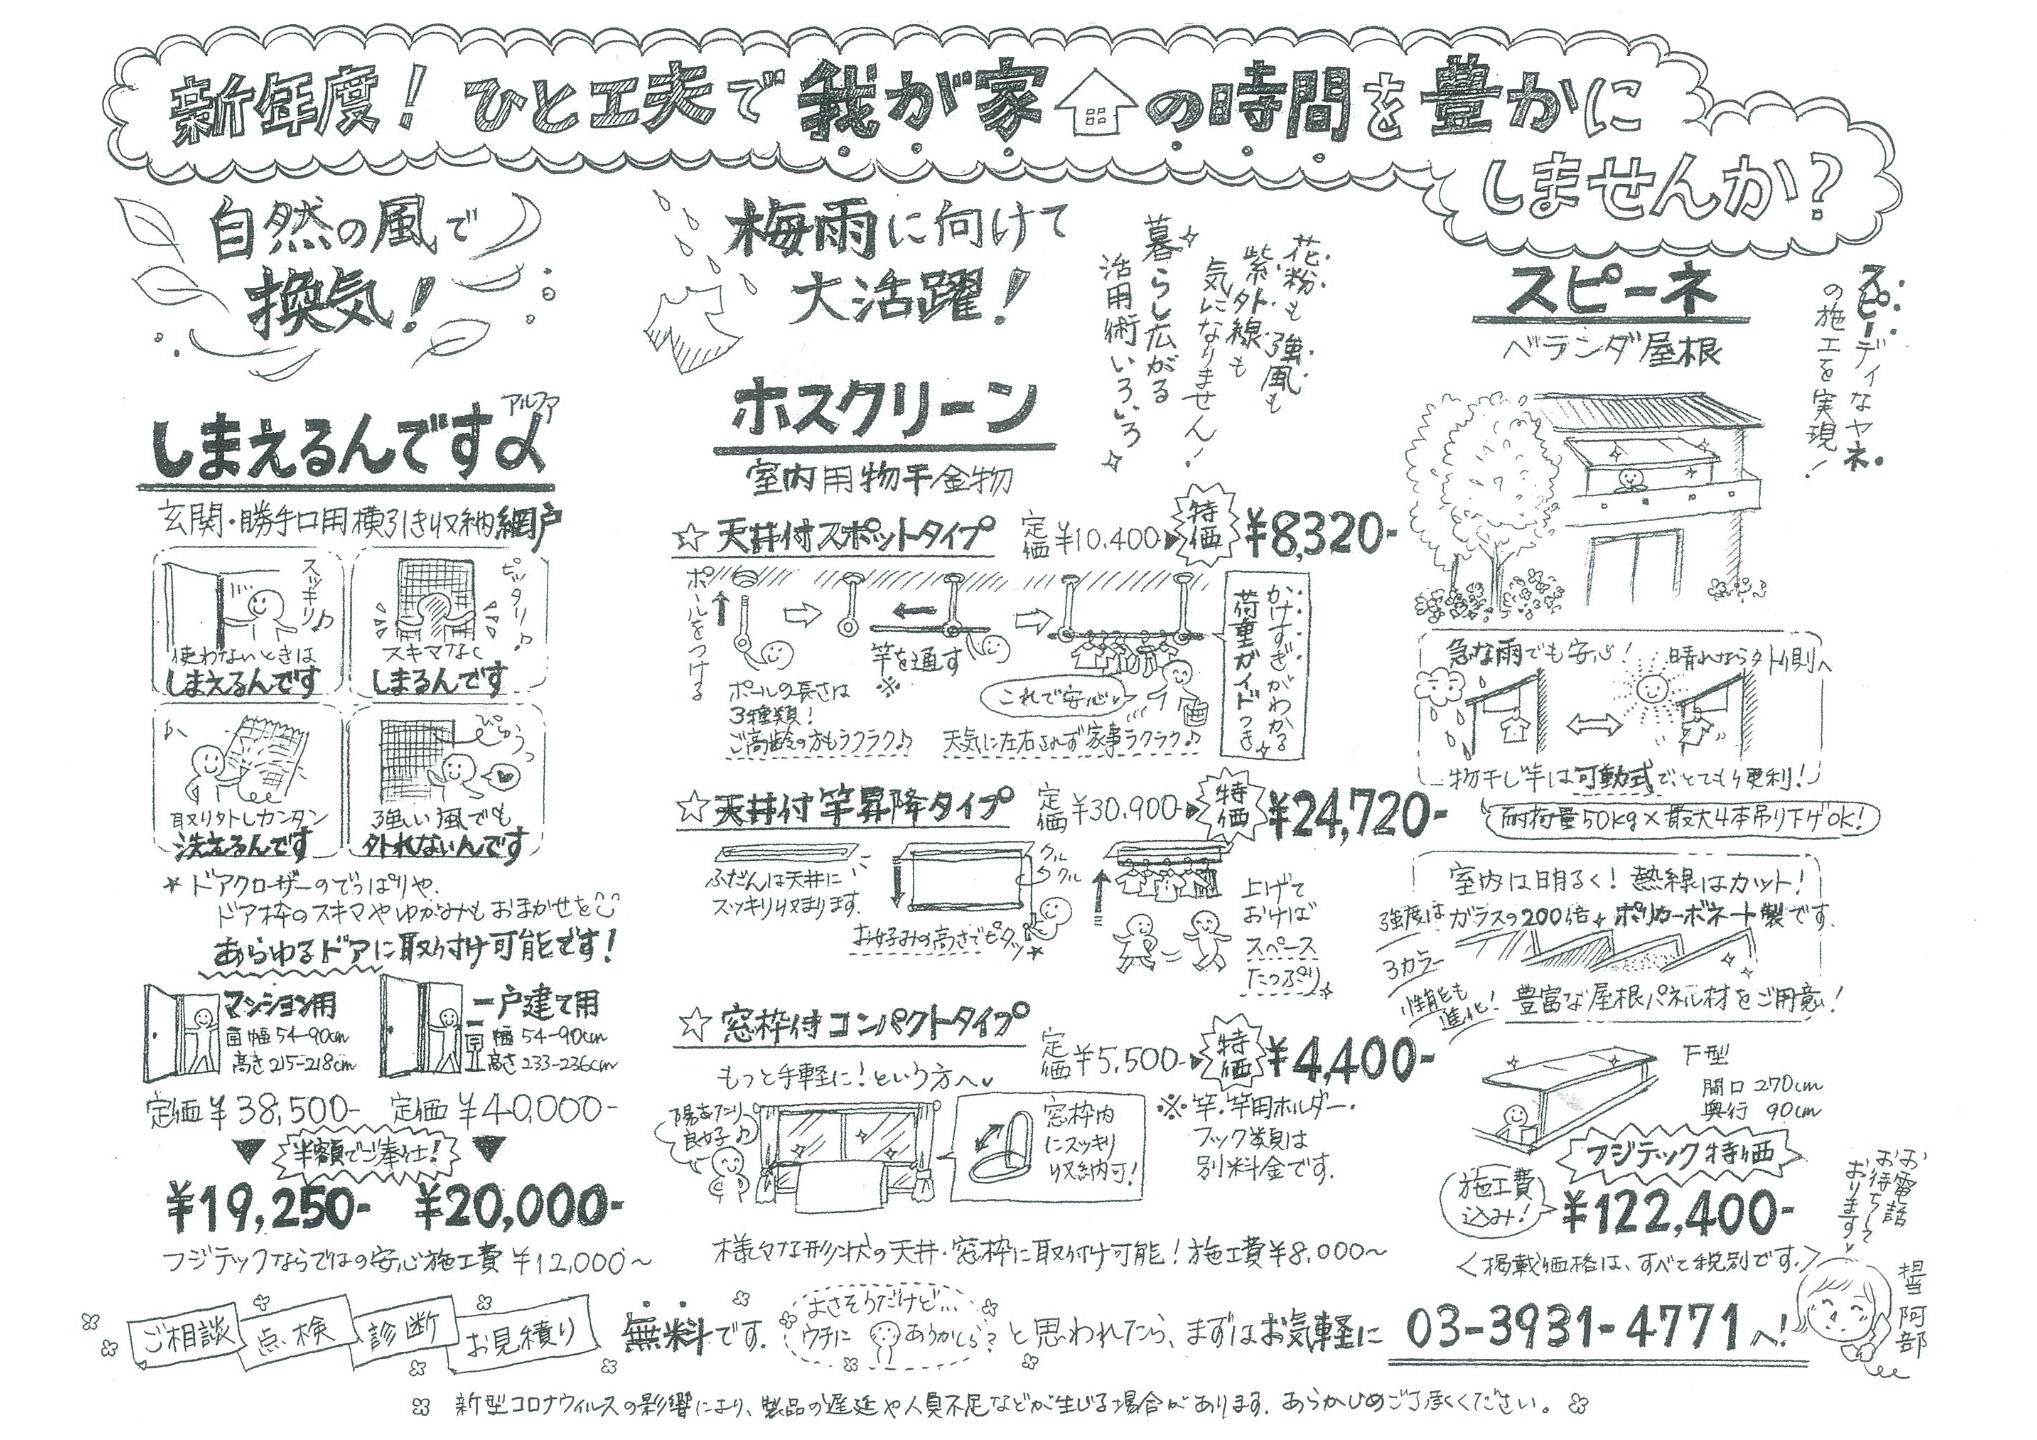 新年度！ひと工夫で我が家の時間を豊かに
しませんか？
自然の風で
換気！
しまえるんですα
アルファ
玄関・勝手口用横引き収納網戸
スッキリ♪
使わないときは
しまえるんです
ピッタリ♪
スキマなく
しまるんです
取り外しカンタン
洗えるんです
ぴゅうっ
強い風でも
外れないんです
★ドアクローザーのでっぱりや、
ドア枠のスキマやゆがみもおまかせを
あらゆるドアに取り付け可能です！
マンション用
幅54-90cm
高さ215-218cm
一戸建て用
幅54-90cm
高さ233-236cm
定価￥38,500-
定価￥40,000-
▼半額でご奉仕！▼
￥19,250-
￥20,000-
フジテックならではの安心施工費￥12,000〜
梅雨に向けて
大活躍！
花粉も強風も
紫外線も
気になりません！
暮らし広がる
活用術いろいろ
ホスクリーン
室内用物干金物
☆天井付スポットタイプ
定価￥10,400
特価
￥8,320-
ポールをつける
竿を通す
※
ポールの長さは
3種類！
ご高齢の方もラクラク♪
これで安心
天気に左右されず家事ラクラク♪
かけすぎがわかる
荷重ガイドつき
☆天井付竿昇降タイプ
定価￥30,900
特価
￥24,720-
ふだんは天井に
スッキリ収まります.
クルクル
お好みの高さでピタッ★
上げて
おけば
スペース
たっぷり
☆窓枠付コンパクトタイプ
定価￥5,500
特価
￥4,400-
もっと手軽に！という方へ
陽当たり
良好♪
窓枠内
にスッキリ
収納可！
※竿・竿用ホルダー・
フック類は
別料金です.
様々な形状の天井・窓枠に取付け可能！施工費￥8,000〜
スピーネ
ベランダ屋根
スピーディなヤネ
の施工を実現！
急な雨でも安心！
晴れなら外側へ
物干し竿は可動式でとても便利！
耐荷量50kg×最大4本吊り下げOK！
室内は明るく！熱線はカット！
強度はガラスの200倍+ポリカーボネート製です.
3カラー
性能も
進化！
豊富な屋根パネル材をご用意！
F型
間口270cm
奥行90cm
フジテック特価
施工費
込み！
￥122,400-
＜掲載価格は、すべて税別です.＞
お電話
お待ちして
おります
担当 阿部
ご相談 点検 診断 お見積り 無料です.
よさそうだけど…
ウチに あうかしら？
と思われたら、まずはお気軽に 03-3931-4771へ！
新型コロナウィルスの影響により、製品の遅延や人員不足などが生じる場合があります. あらかじめご了承ください。